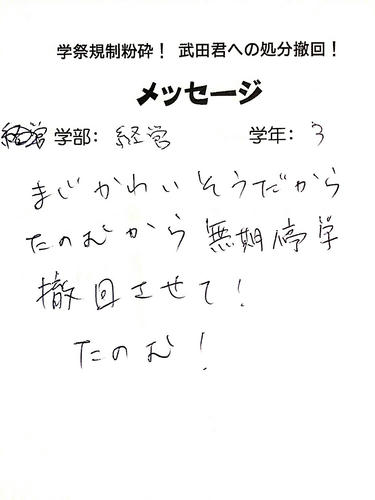 学祭規制粉砕！ 武田君への処分撤回！
メッセージ
経営 学部: 経営 学年: 3
まじかわいそうだから
たのむから無期停学
撤回させて！
たのむ！